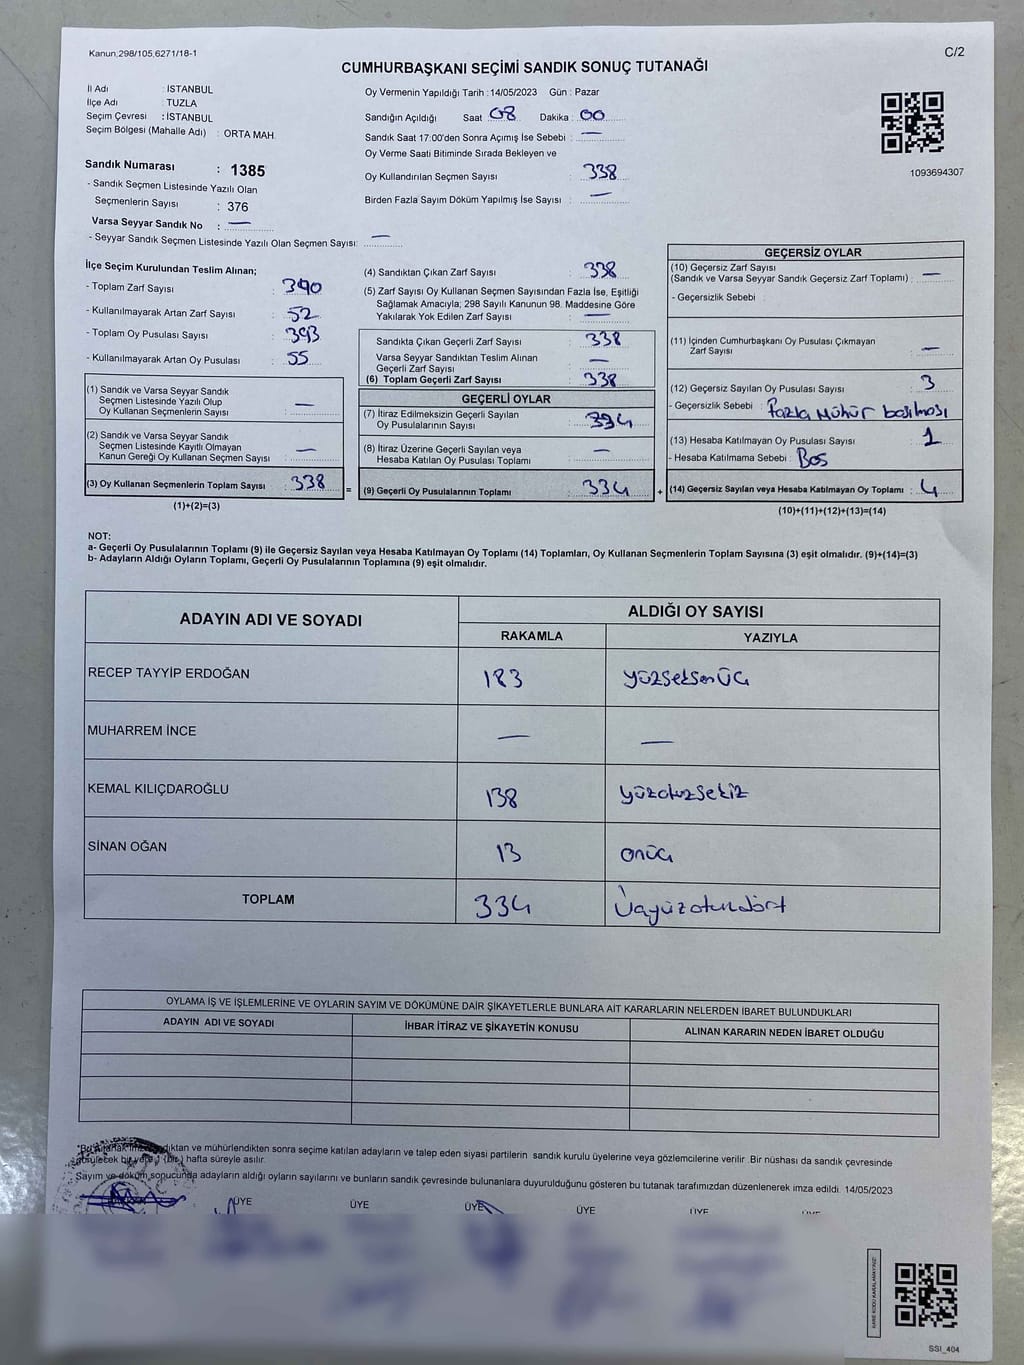 Kanun;298/105,6271/18-1
C/2
CUMHURBAŞKANI SEÇİMİ SANDIK SONUÇ TUTANAĞI
İl Adı : İSTANBUL
İlçe Adı : TUZLA
Seçim Çevresi : İSTANBUL
Seçim Bölgesi (Mahalle Adı) : ORTA MAH.
Sandık Numarası : 1385
- Sandık Seçmen Listesinde Yazılı Olan
Seçmenlerin Sayısı : 376
Varsa Seyyar Sandık No : —
- Seyyar Sandık Seçmen Listesinde Yazılı Olan Seçmen Sayısı: —
Oy Vermenin Yapıldığı Tarih : 14/05/2023 Gün : Pazar
Sandığın Açıldığı Saat : 08 Dakika : 00
Sandık Saat 17:00'den Sonra Açımış İse Sebebi : —
Oy Verme Saati Bitiminde Sırada Bekleyen ve
Oy Kullandırılan Seçmen Sayısı : 338
Birden Fazla Sayım Döküm Yapılmış İse Sayısı : —
1093694307
İlçe Seçim Kurulundan Teslim Alınan;
- Toplam Zarf Sayısı : 390
- Kullanılmayarak Artan Zarf Sayısı : 52
- Toplam Oy Pusulası Sayısı : 393
- Kullanılmayarak Artan Oy Pusulası : 55
(1) Sandık ve Varsa Seyyar Sandık
Seçmen Listesinde Yazılı Olup
Oy Kullanan Seçmenlerin Sayısı : —
(2) Sandık ve Varsa Seyyar Sandık
Seçmen Listesinde Kayıtlı Olmayan
Kanun Gereği Oy Kullanan Seçmen Sayısı : —
(3) Oy Kullanan Seçmenlerin Toplam Sayısı : 338
(1)+(2)=(3)
=
(4) Sandıktan Çıkan Zarf Sayısı : 338
(5) Zarf Sayısı Oy Kullanan Seçmen Sayısından Fazla İse, Eşitliği
Sağlamak Amacıyla; 298 Sayılı Kanunun 98. Maddesine Göre
Yakılarak Yok Edilen Zarf Sayısı : —
Sandıkta Çıkan Geçerli Zarf Sayısı : 338
Varsa Seyyar Sandıktan Teslim Alınan
Geçerli Zarf Sayısı : —
(6) Toplam Geçerli Zarf Sayısı : 338
GEÇERLİ OYLAR
(7) İtiraz Edilmeksizin Geçerli Sayılan
Oy Pusulalarının Sayısı : 334
(8) İtiraz Üzerine Geçerli Sayılan veya
Hesaba Katılan Oy Pusulası Toplamı : —
(9) Geçerli Oy Pusulalarının Toplamı : 334
+
GEÇERSİZ OYLAR
(10) Geçersiz Zarf Sayısı
(Sandık ve Varsa Seyyar Sandık Geçersiz Zarf Toplamı) : —
- Geçersizlik Sebebi :
(11) İçinden Cumhurbaşkanı Oy Pusulası Çıkmayan
Zarf Sayısı : —
(12) Geçersiz Sayılan Oy Pusulası Sayısı : 3
- Geçersizlik Sebebi : Fazla Mühür basılması
(13) Hesaba Katılmayan Oy Pusulası Sayısı : 1
- Hesaba Katılmama Sebebi : Boş
(14) Geçersiz Sayılan veya Hesaba Katılmayan Oy Toplamı : 4
(10)+(11)+(12)+(13)=(14)
NOT:
a- Geçerli Oy Pusulalarının Toplamı (9) ile Geçersiz Sayılan veya Hesaba Katılmayan Oy Toplamı (14) Toplamları, Oy Kullanan Seçmenlerin Toplam Sayısına (3) eşit olmalıdır. (9)+(14)=(3)
b- Adayların Aldığı Oyların Toplamı, Geçerli Oy Pusulalarının Toplamına (9) eşit olmalıdır.
ADAYIN ADI VE SOYADI
ALDIĞI OY SAYISI
RAKAMLA YAZIYLA
RECEP TAYYİP ERDOĞAN 183 yüzseksenüç
MUHARREM İNCE — —
KEMAL KILIÇDAROĞLU 138 yüzotuzsekiz
SİNAN OĞAN 13 onüç
TOPLAM 334 Üçyüzotuzdört
OYLAMA İŞ VE İŞLEMLERİNE VE OYLARIN SAYIM VE DÖKÜMÜNE DAİR ŞİKAYETLERLE BUNLARA AİT KARARLARIN NELERDEN İBARET BULUNDUKLARI
ADAYIN ADI VE SOYADI İHBAR İTİRAZ VE ŞİKAYETİN KONUSU ALINAN KARARIN NEDEN İBARET OLDUĞU
ve mühürlendikten sonra seçime katılan adayların ve talep eden siyasi partilerin sandık kurulu üyelerine veya gözlemcilerine verilir. Bir nüshası da sandık çevresinde
hafta süreyle asılır.
Sayım ve döküm sonucunda adayların aldığı oyların sayılarını ve bunların sandık çevresinde bulunanlara duyurulduğunu gösteren bu tutanak tarafımızdan düzenlenerek imza edildi. 14/05/2023
ÜYE ÜYE ÜYE ÜYE ÜYE
SSI_404